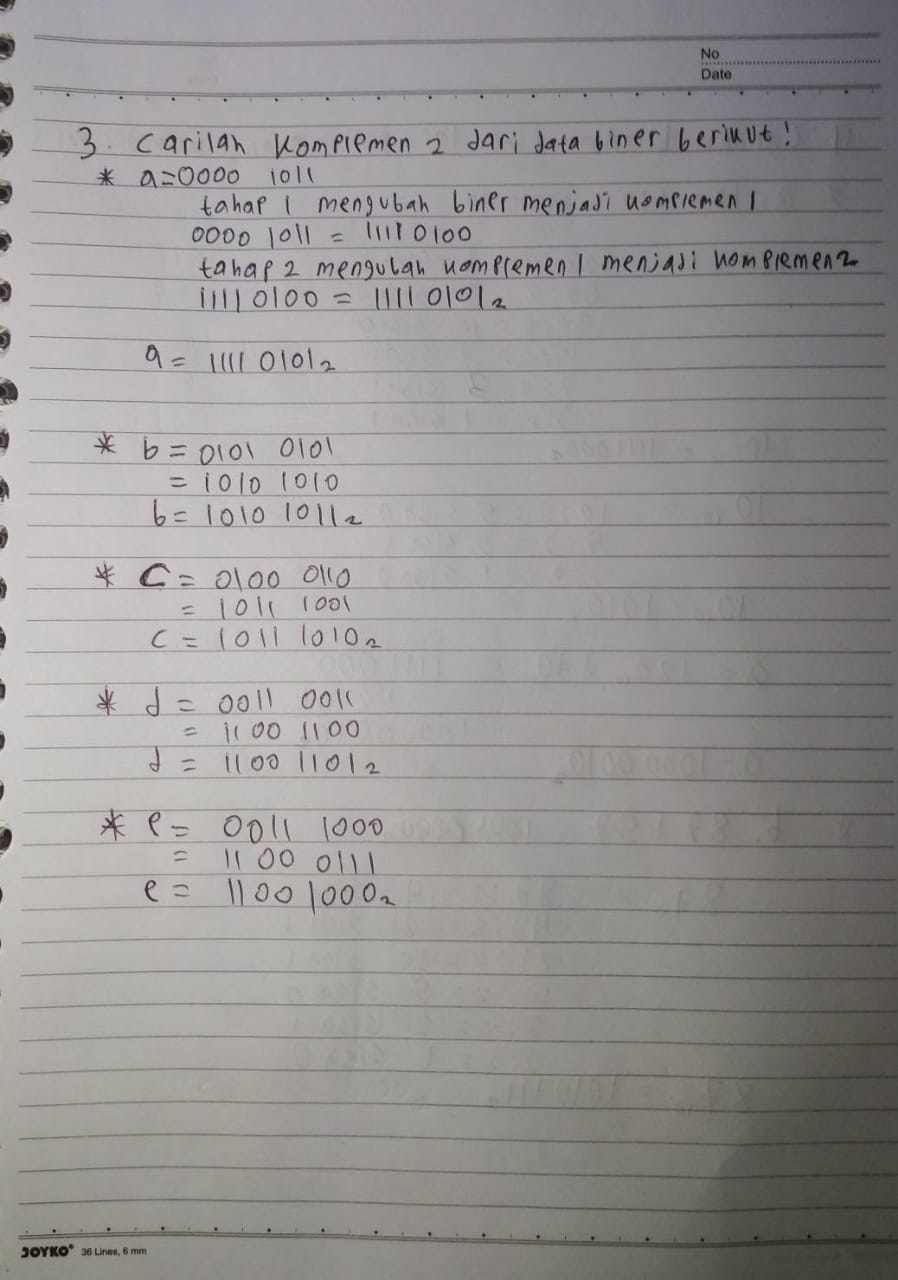 No
Date
3. Carilah Komplemen 2 dari data biner berikut!
* a=0000 1011
tahap 1 mengubah biner menjadi komplemen 1
0000 1011 = 1111 0100
tahap 2 mengubah komplemen 1 menjadi komplemen 2
1111 0100 = 1111 0101₂
a = 1111 0101₂
* b = 0101 0101
= 1010 1010
b = 1010 1011₂
* C = 0100 0110
= 1011 1001
c = 1011 1010₂
* d = 0011 0011
= 1100 1100
d = 1100 1101₂
* e = 0011 1000
= 1100 0111
e = 1100 1000₂
JOYKO® 36 Lines, 6 mm